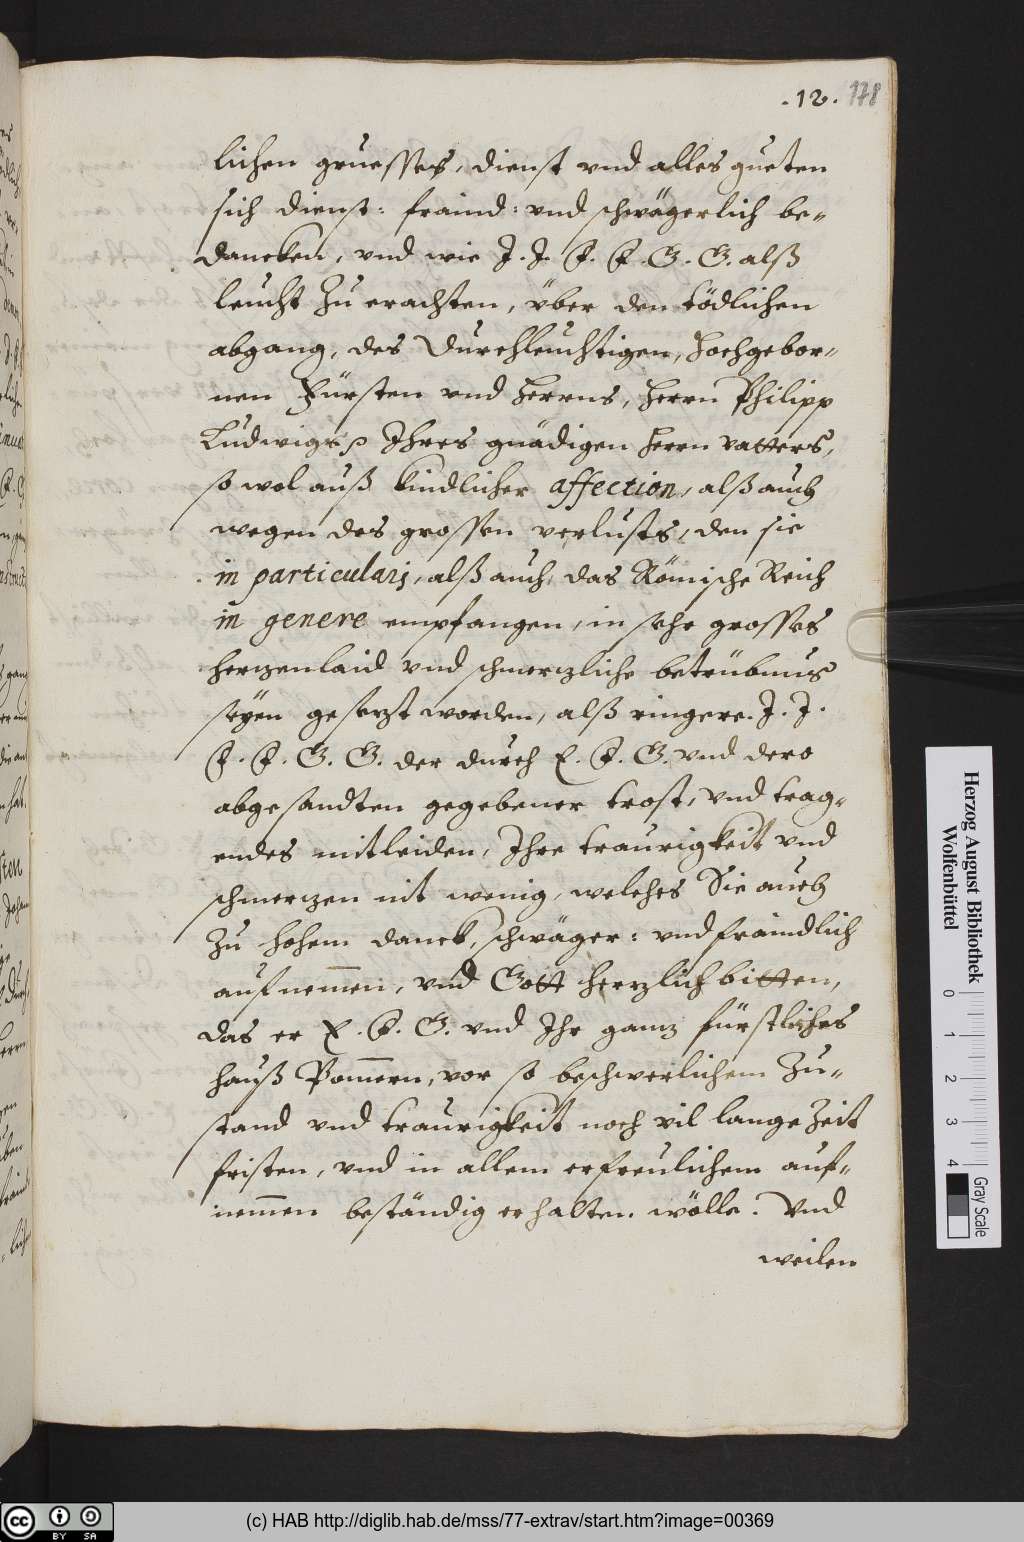 .12. 178
lichen gruesses, dienst vnd alles gueten
sich dienst: fraind: vnd schwägerlich be-
dancken, vnd wie J. J. F. F. G. G. alß
leucht zu erachten, über den tödlichen
abgang, des Durchleuchtigen, Hochgebor-
nen Fürsten vnd Herrns, Herrn Philipp
Ludwigs p Ihres gnädigen Herrn vatters,
so wol auß kindlicher affection, alß auch
wegen des grossen verlusts, den sie
in particularj, alß auch, das Römische Reich
in genere empfangen, in sehr grosses
herzenlaid vnd schmerzliche betrübnus
seyen gesetzt worden, alß ringere J. J.
F. F. G. G. der durch E. F. G. vnd dero
abgesandten gegebener trost, vnd trag-
endes mitleiden, Ihre traurigkeit vnd
schmerzen nit wenig, welches Sie auch
zu hohem danck, schwäger: vnd fraindlich
aufnemen, vnd Gott herzlich bitten,
das er E. F. G. vnd Ihr ganz fürstliches
hauß Pomern, vor so beschwerlichem Zu-
stand vnd traurigkeit noch vil lange Zeit
fristen, vnd in allem erfreulichem auf-
nemen beständig erhalten wölle. Vnd
weilen
Herzog August Bibliothek
Wolfenbüttel
0 1 2 3 4
Gray Scale
cc BY SA
(c) HAB http://diglib.hab.de/mss/77-extrav/start.htm?image=00369